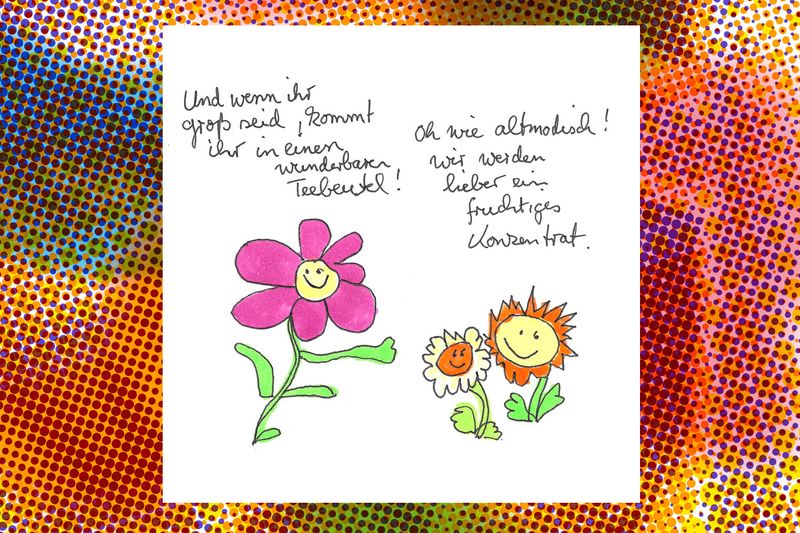 Und wenn ihr
groß seid, kommt
ihr in einen
wunderbaren
Teebeutel!
Oh wie altmodisch!
wir werden
lieber ein
fruchtiges
Konzentrat.